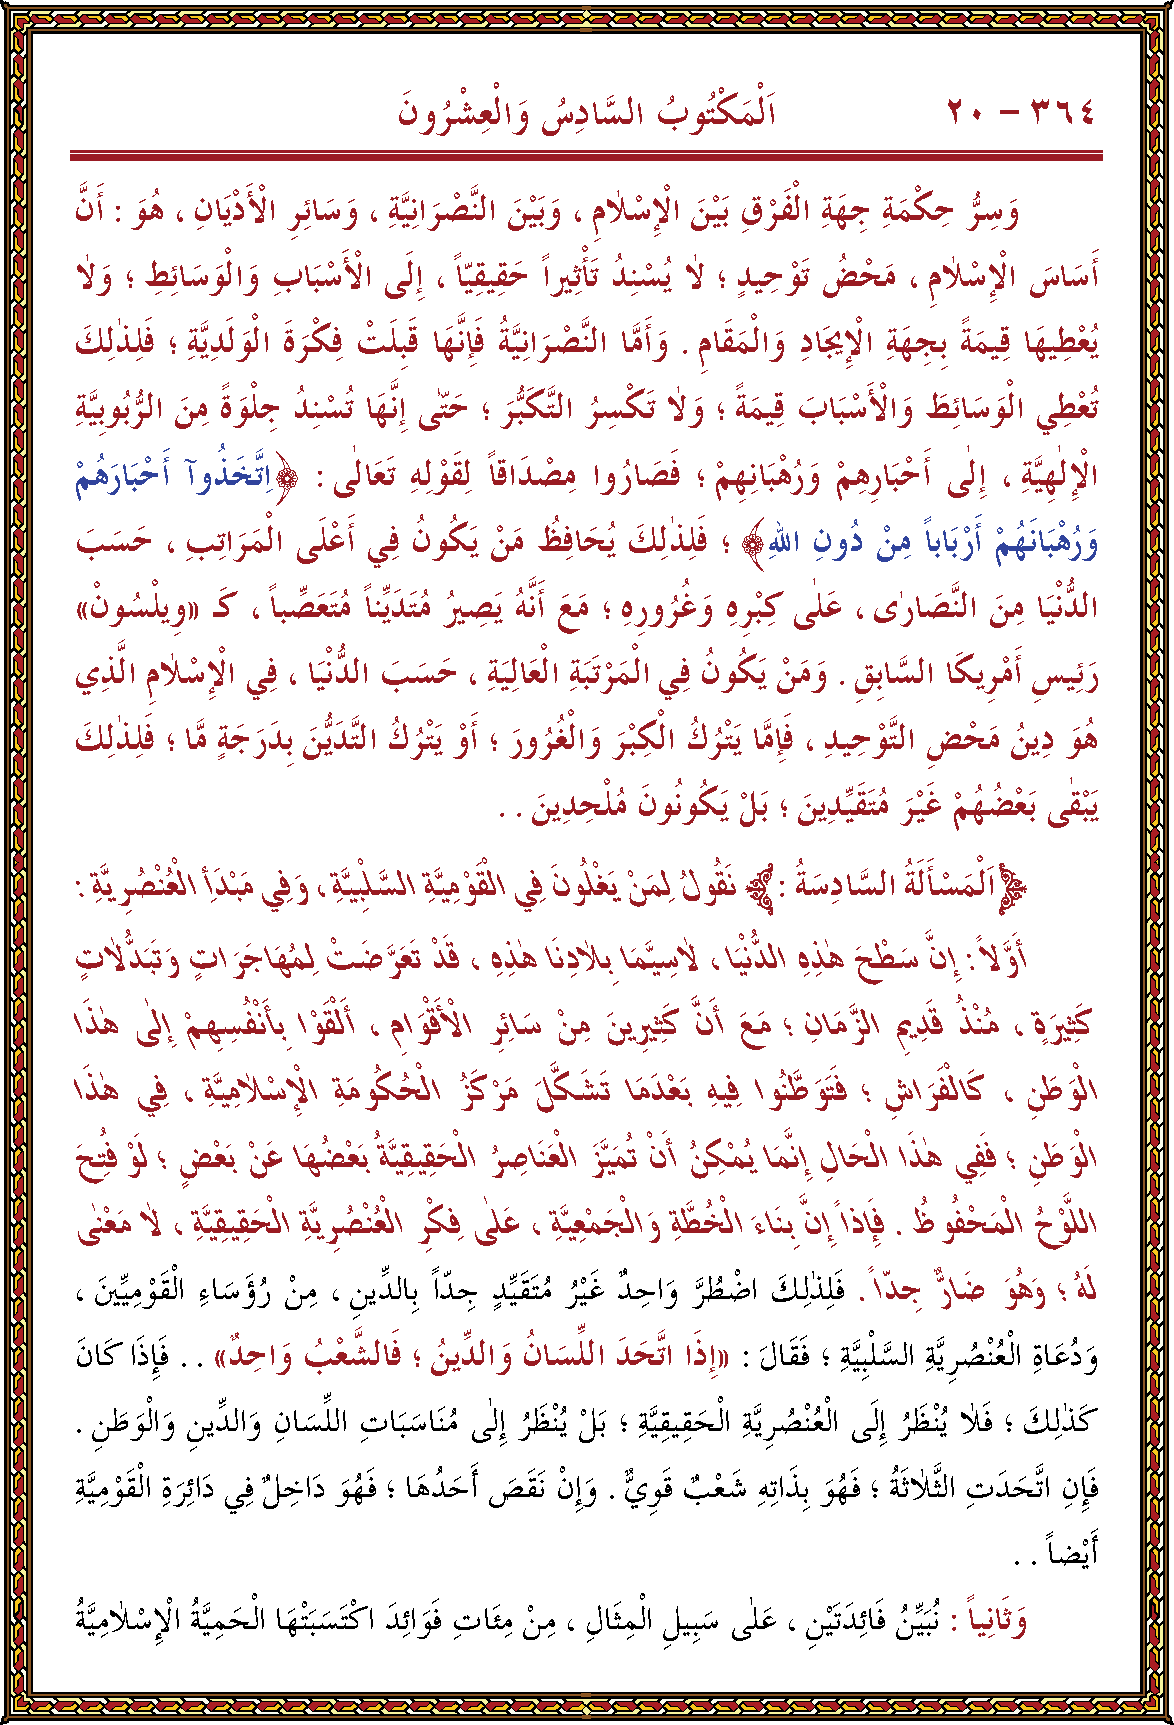 ٣٦٤ – ٢٠ اَلْمَكْتُوبُ السَّادِسُ وَالْعِشْرُونَ
وَسِرُّ حِكْمَةِ جِهَةِ الْفَرْقِ بَيْنَ الْإِسْلَامِ ، وَبَيْنَ النَّصْرَانِيَّةِ ، وَسَائِرِ الْأَدْيَانِ ، هُوَ : أَنَّ
أَسَاسَ الْإِسْلَامِ ، مَحْضُ تَوْحِيدٍ ؛ لَا يُسْنِدُ تَأْثِيراً حَقِيقِيّاً ، إِلَى الْأَسْبَابِ وَالْوَسَائِطِ ؛ وَلَا
يُعْطِيهَا قِيمَةً بِجِهَةِ الْإِيجَادِ وَالْمَقَامِ . وَأَمَّا النَّصْرَانِيَّةُ فَإِنَّهَا قَبِلَتْ فِكْرَةَ الْوَلَدِيَّةِ ؛ فَلِذٰلِكَ
تُعْطِي الْوَسَائِطَ وَالْأَسْبَابَ قِيمَةً ؛ وَلَا تَكْسِرُ التَّكَبُّرَ ؛ حَتّٰى إِنَّهَا تُسْنِدُ جِلْوَةً مِنَ الرُّبُوبِيَّةِ
الْإِلٰهِيَّةِ ، إِلٰى أَحْبَارِهِمْ وَرُهْبَانِهِمْ ؛ فَصَارُوا مِصْدَاقاً لِقَوْلِهِ تَعَالٰى : ﴿اِتَّخَذُوآ أَحْبَارَهُمْ
وَرُهْبَانَهُمْ أَرْبَاباً مِنْ دُونِ اللهِ﴾ ؛ فَلِذٰلِكَ يُحَافِظُ مَنْ يَكُونُ فِي أَعْلَى الْمَرَاتِبِ ، حَسَبَ
الدُّنْيَا مِنَ النَّصَارٰى ، عَلٰى كِبْرِهِ وَغُرُورِهِ ؛ مَعَ أَنَّهُ يَصِيرُ مُتَدَيِّناً مُتَعَصِّباً ، كَـ «وِيلْسُونْ»
رَئِيسِ أَمْرِيكَا السَّابِقِ . وَمَنْ يَكُونُ فِي الْمَرْتَبَةِ الْعَالِيَةِ ، حَسَبَ الدُّنْيَا ، فِي الْإِسْلَامِ الَّذِي
هُوَ دِينُ مَحْضِ التَّوْحِيدِ ، فَإِمَّا يَتْرُكُ الْكِبْرَ وَالْغُرُورَ ؛ أَوْ يَتْرُكُ التَّدَيُّنَ بِدَرَجَةٍ مَّا ؛ فَلِذٰلِكَ
يَبْقٰى بَعْضُهُمْ غَيْرَ مُتَقَيِّدِينَ ؛ بَلْ يَكُونُونَ مُلْحِدِينَ . .
﴿اَلْمَسْأَلَةُ السَّادِسَةُ :﴾ نَقُولُ لِمَنْ يَغْلُونَ فِي الْقَوْمِيَّةِ السَّلْبِيَّةِ ، وَفِي مَبْدَأ الْعُنْصُرِيَّةِ :
أَوَّلاً : إِنَّ سَطْحَ هٰذِهِ الدُّنْيَا ، لَاسِيَّمَا بِلَادِنَا هٰذِهِ ، قَدْ تَعَرَّضَتْ لِمُهَاجَرَاتٍ وَتَبَدُّلَاتٍ
كَثِيرَةٍ ، مُنْذُ قَدِيمِ الزَّمَانِ ؛ مَعَ أَنَّ كَثِيرِينَ مِنْ سَائِرِ الْأَقْوَامِ ، أَلْقَوْا بِأَنْفُسِهِمْ إِلٰى هٰذَا
الْوَطَنِ ، كَالْفَرَاشِ ؛ فَتَوَطَّنُوا فِيهِ بَعْدَمَا تَشَكَّلَ مَرْكَزُ الْحُكُومَةِ الْإِسْلَامِيَّةِ ، فِي هٰذَا
الْوَطَنِ ؛ فَفِي هٰذَا الْحَالِ إِنَّمَا يُمْكِنُ أَنْ تُمَيَّزَ الْعَنَاصِرُ الْحَقِيقِيَّةُ بَعْضُهَا عَنْ بَعْضٍ ؛ لَوْ فُتِحَ
اللَّوْحُ الْمَحْفُوظُ . فَإِذاً إِنَّ بِنَاءَ الْخُطَّةِ وَالْجَمْعِيَّةِ ، عَلٰى فِكْرِ الْعُنْصُرِيَّةِ الْحَقِيقِيَّةِ ، لَا مَعْنٰى
لَهُ ؛ وَهُوَ ضَارٌّ جِدّاً . فَلِذٰلِكَ اضْطُرَّ وَاحِدٌ غَيْرُ مُتَقَيِّدٍ جِدّاً بِالدِّينِ ، مِنْ رُؤَسَاءِ الْقَوْمِيِّينَ ،
وَدُعَاةِ الْعُنْصُرِيَّةِ السَّلْبِيَّةِ ؛ فَقَالَ : «إِذَا اتَّحَدَ اللِّسَانُ وَالدِّينُ ؛ فَالشَّعْبُ وَاحِدٌ» . . فَإِذَا كَانَ
كَذٰلِكَ ؛ فَلَا يُنْظَرُ إِلَى الْعُنْصُرِيَّةِ الْحَقِيقِيَّةِ ؛ بَلْ يُنْظَرُ إِلٰى مُنَاسَبَاتِ اللِّسَانِ وَالدِّينِ وَالْوَطَنِ .
فَإِنِ اتَّحَدَتِ الثَّلَاثَةُ ؛ فَهُوَ بِذَاتِهِ شَعْبٌ قَوِيٌّ . وَإِنْ نَقَصَ أَحَدُهَا ؛ فَهُوَ دَاخِلٌ فِي دَائِرَةِ الْقَوْمِيَّةِ
أَيْضاً . .
وَثَانِياً : نُبَيِّنُ فَائِدَتَيْنِ ، عَلٰى سَبِيلِ الْمِثَالِ ، مِنْ مِئَاتِ فَوَائِدَ اكْتَسَبَتْهَا الْحَمِيَّةُ الْإِسْلَامِيَّةُ